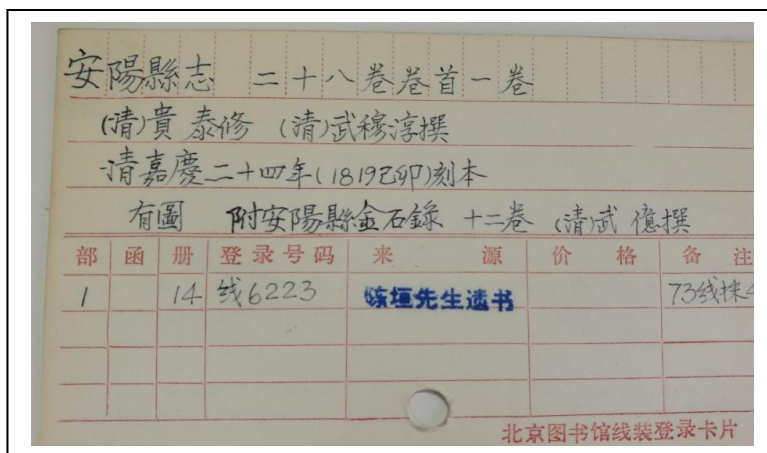 安陽縣志 二十八卷卷首一卷
(清)貴 泰修 (清)武穆淳撰
清嘉慶二十四年(1819己卯)刻本
有圖 附安陽縣金石錄 十二卷 (清)武 億撰
部 函 册 登录号码 来 源 价 格 备 注
1 14 线6223 陈垣先生遗书 73线採
北京图书馆线装登录卡片